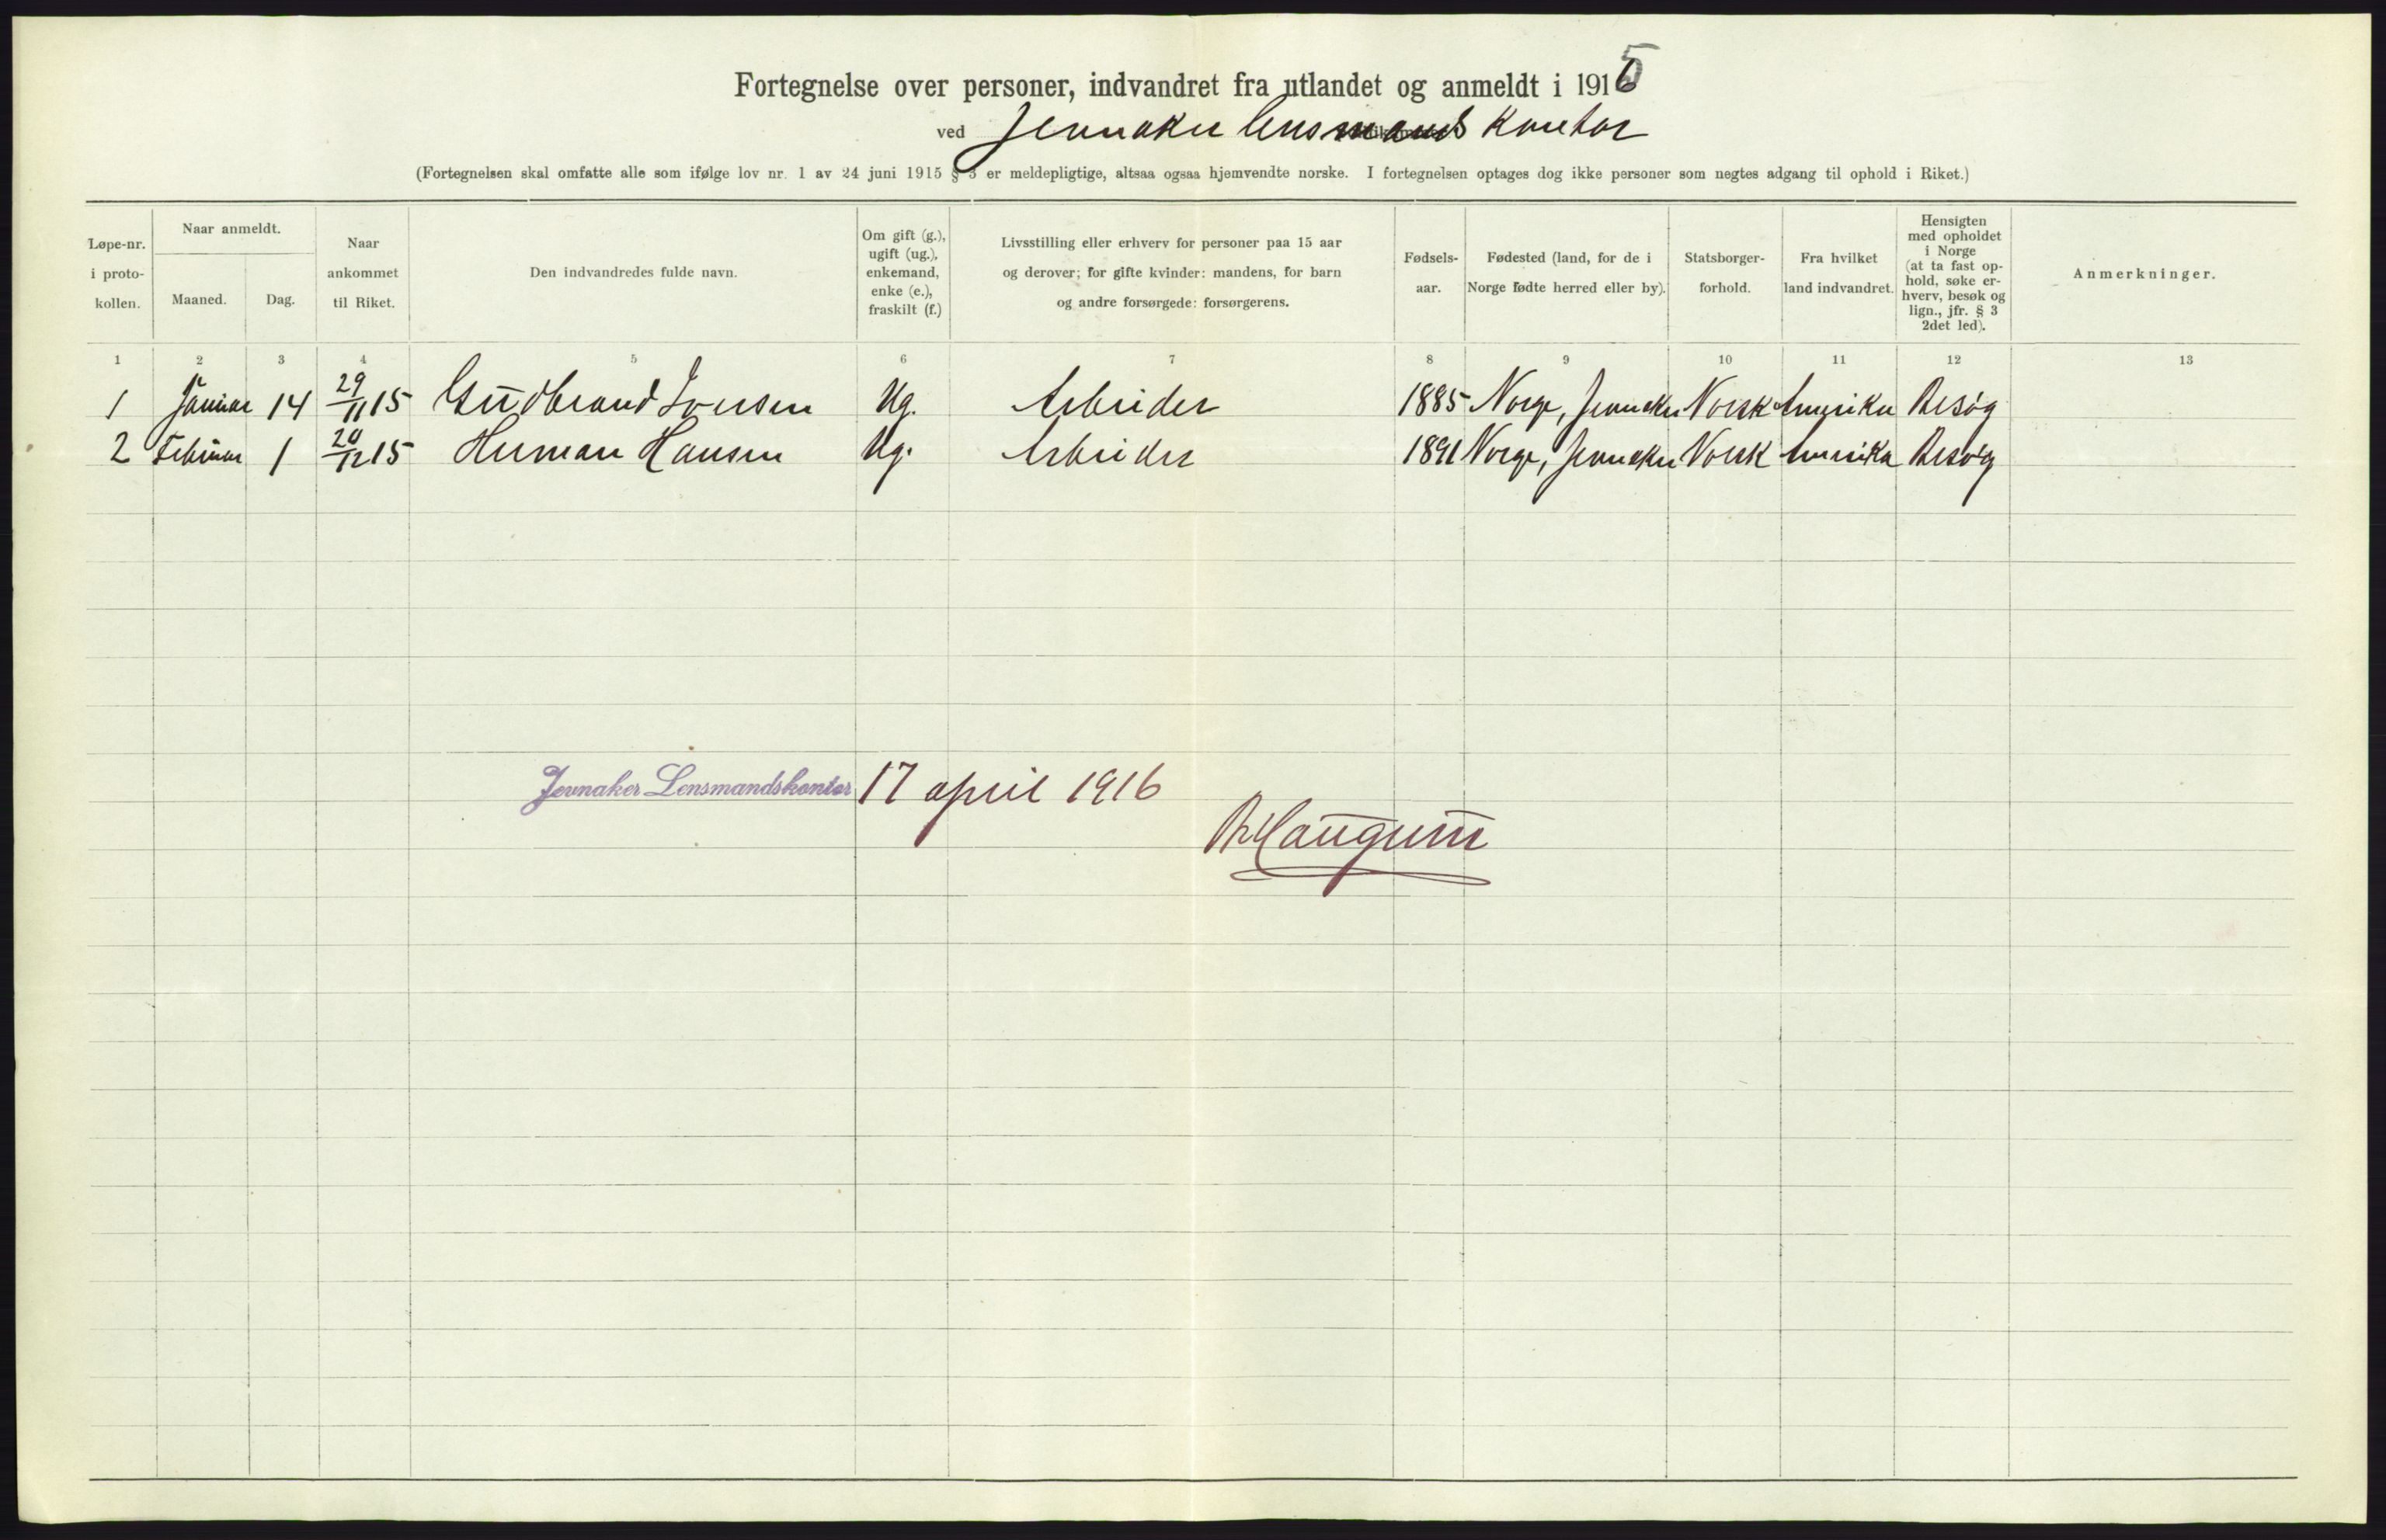 Fortegnelse over personer, indvandret fra utlandet og anmeldt i 1916
ved Jevnaker lensmands kontor
(Fortegnelsen skal omfatte alle som ifølge lov nr. 1 av 24 juni 1915 § 3 er meldepligtige, altsaa ogsaa hjemvendte norske. I fortegnelsen optages dog ikke personer som negtes adgang til ophold i Riket.)
Løpe-nr.
i proto-
kollen.
Naar anmeldt.
Maaned.
Dag.
Naar
ankommet
til Riket.
Den indvandredes fulde navn.
Om gift (g.),
ugift (ug.),
enkemand,
enke (e.),
fraskilt (f.)
Livsstilling eller erhverv for personer paa 15 aar
og derover; for gifte kvinder: mandens, for barn
og andre forsørgede: forsørgerens.
Fødsels-
aar.
Fødested (land, for de i
Norge fødte herred eller by).
Statsborger-
forhold.
Fra hvilket
land indvandret.
Hensigten
med opholdet
i Norge
(at ta fast op-
hold, søke er-
hverv, besøk og
lign., jfr. § 3
2det led).
Anmerkninger.
1 2 3 4 5 6 7 8 9 10 11 12 13
1 Januar 14 29/11 15 Gudbrand Iversen Ug. Arbeider 1885 Norge, Jevnaker Norsk Amerika Besøg
2 Februar 1 20/12 15 Herman Hansen Ug. Arbeider 1891 Norge, Jevnaker Norsk Amerika Besøg
Jevnaker Lensmandskontor 17 april 1916
Haugerud